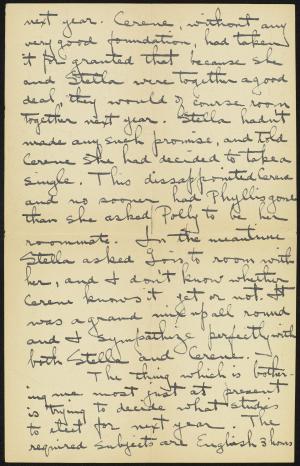 next year. Cerene, without any
very good foundation, had taken
it for granted that because she
and Stella were together a good
deal, they would of course room
together next year. Stella hadn't
made any such promise, and told
Cerene she had decided to take a
single. This dissappointed Cerene
and no sooner had Phyllis gone
than she asked Polly to be her
roommate. In the meantime
Stella asked Lois to room with
her, and I don't know whether
Cerene knows it yet or not. It
was a grand mix up all round
and I sympathize perfectly with
both Stella and Cerene.
The thing which is bother-
ing me most just at present
is trying to decide what studies
to elect for next year. The
required subjects are English 3 hours